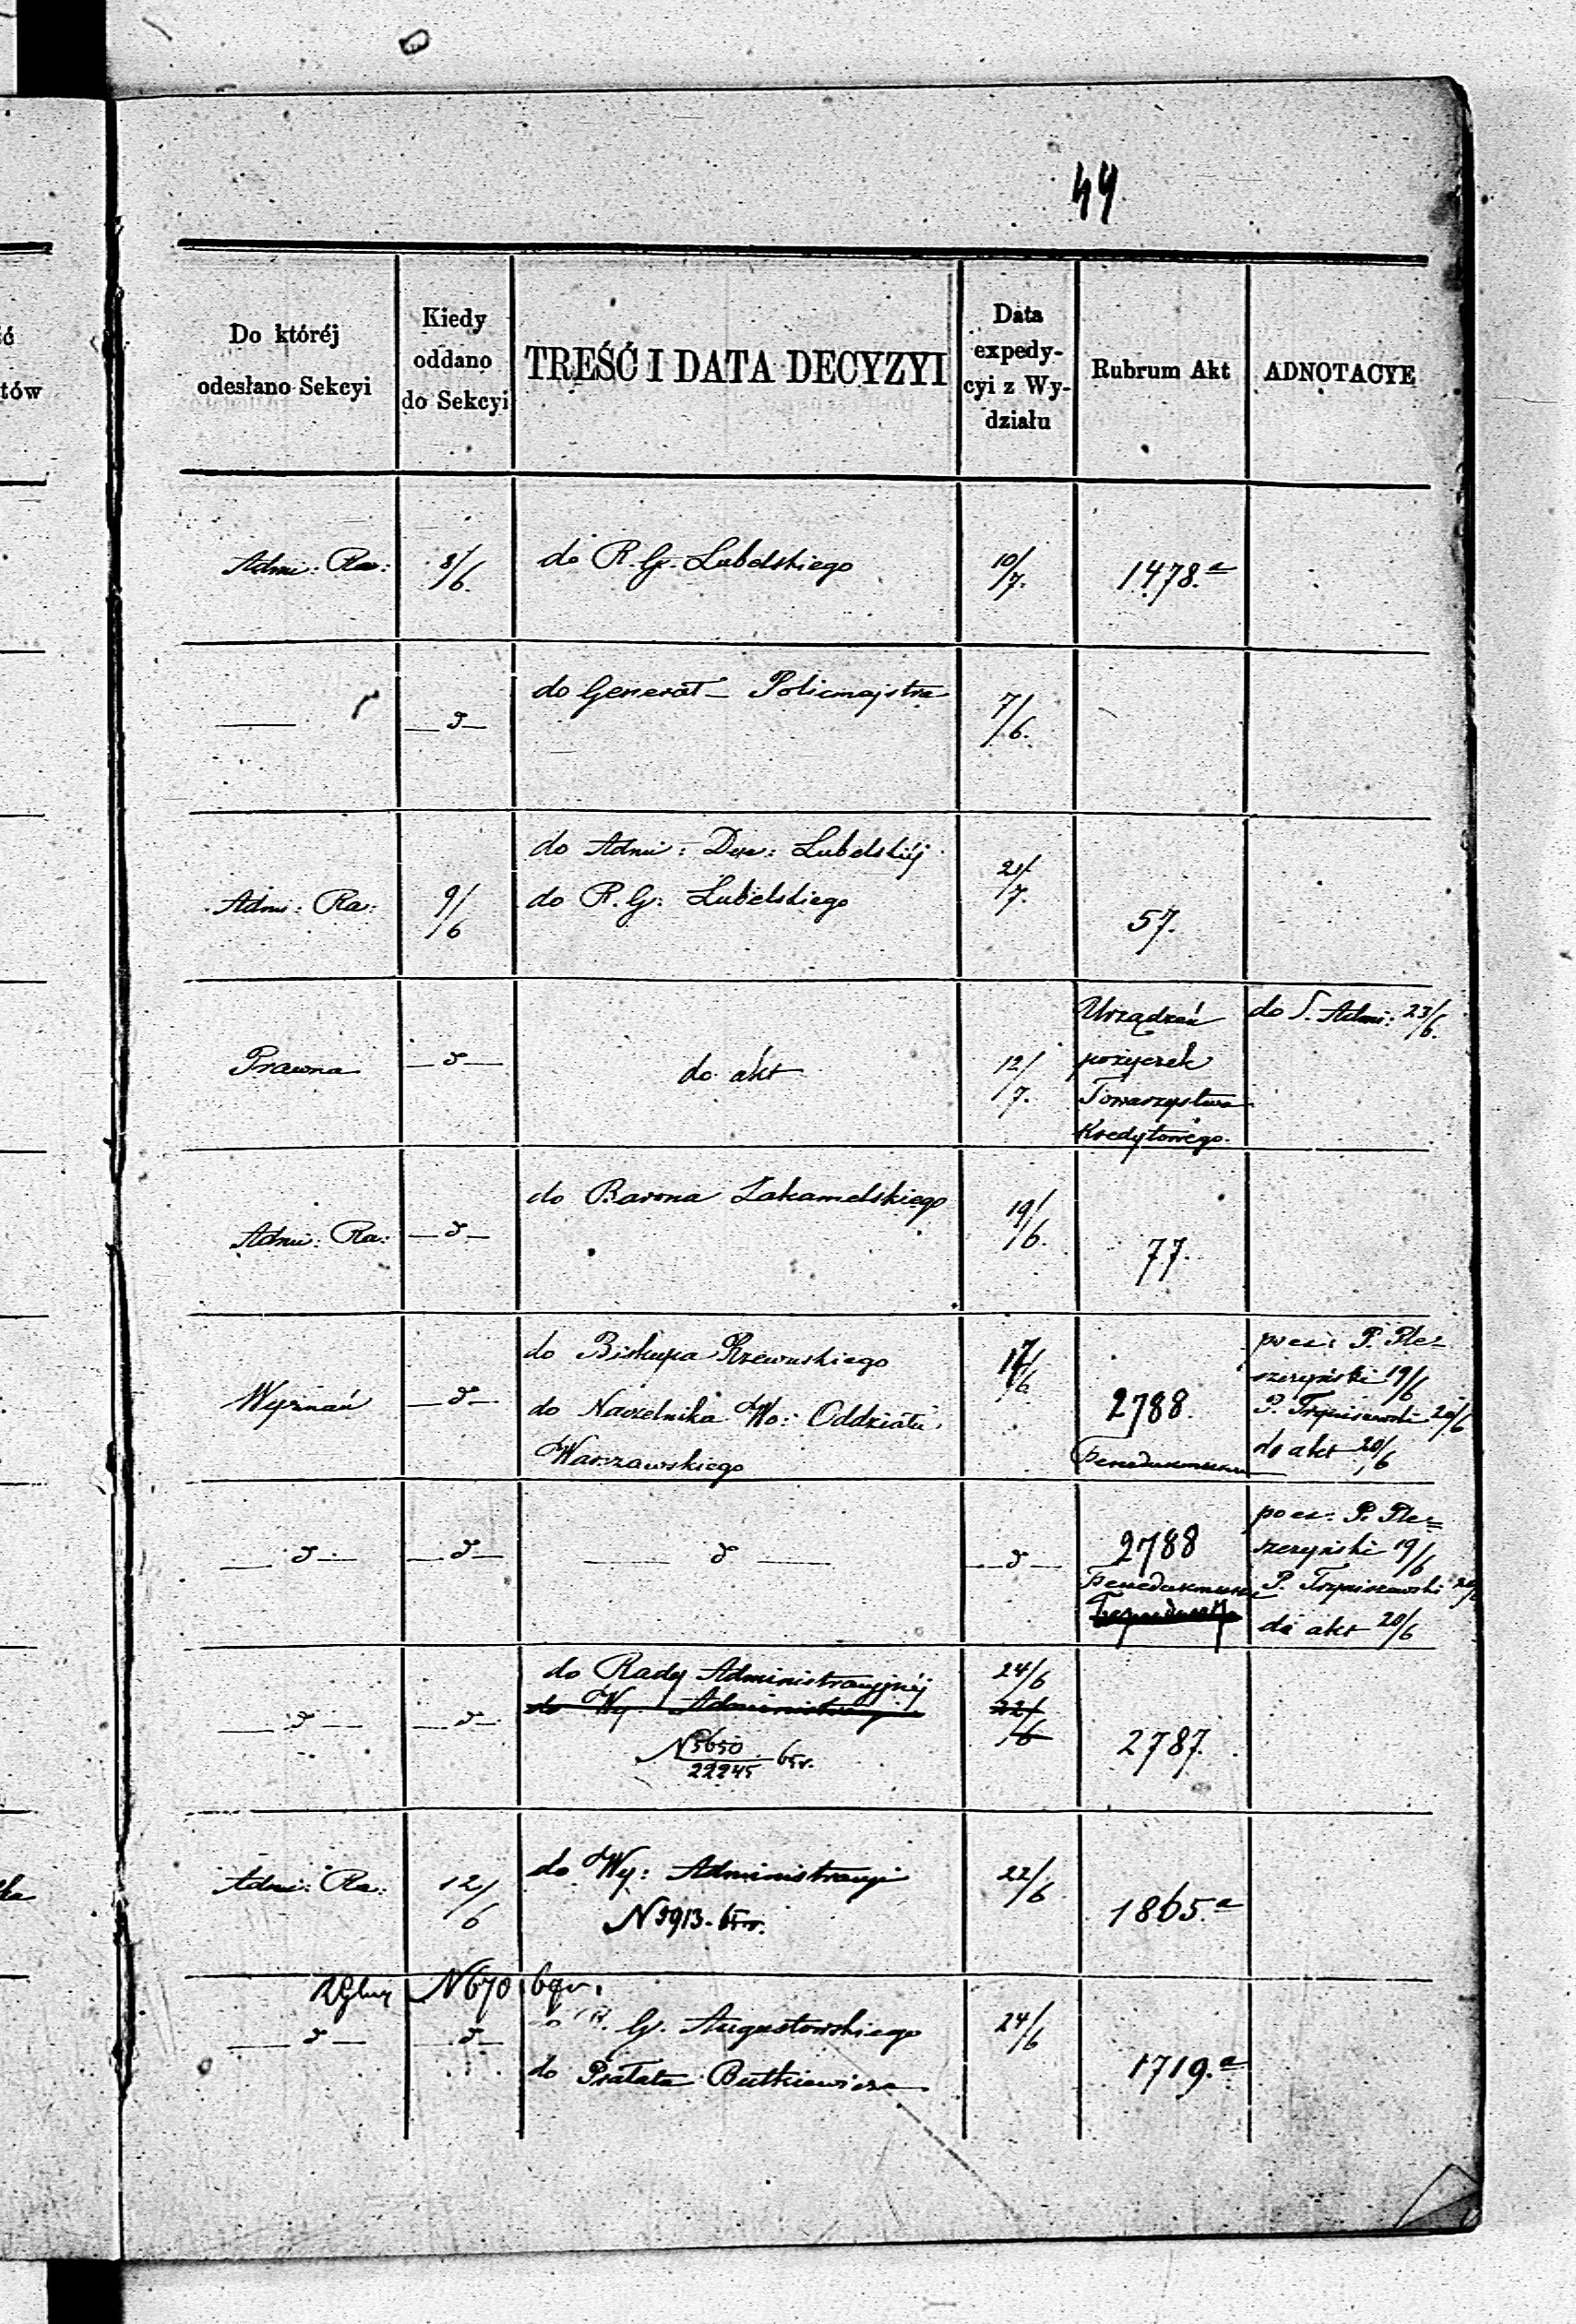 44
Do któréj
odesłano Sekcyi
Kiedy
oddano
do Sekcyi
TREŚĆ I DATA DECYZYI
Data
expedy-
cyi z Wy-
działu
Rubrum Akt
ADNOTACYE
Admi: Ra: 8/6 do R. G. Lubelskiego 10/7. 1478.a
do Generał- Policmajstra 7/6.
do Admi: Die: Lubelskiéj
Admi: Ra: 9/6 do R. G: Lubelskiego 21/7. 57.
Prawna do akt 12/7.
Urządzeń
pożyczek
Towarzystwa
Kredytowego.
do S. Admi: 23/6.
Admi: Ra: do Barona Zakamelskiego 19/6. 77.
Wyznań
do Biskupa Rzewuskiego 17/6
do Naczelnika Wo: Oddziału
Warszawskiego
2788.
P. Ple-
szczyński 19/6
P. Trzpiszewski 20/6
do akt 20/6
2788
P. Ple=
szczyński 19/6
P. Trzpiszewski
do akt 20/6
do Rady Administracyjnéj 24/6
do Wy. Administracyi 22/6
N 5650/22245 65r.
2787.
Admi: Ra: 12/6 do Wy: Administracyi 22/6 1865.a
N 5913. 65r.
N 670
R. G. Augustowskiego 24/6
do Prałata Butkiewicza 1719.a